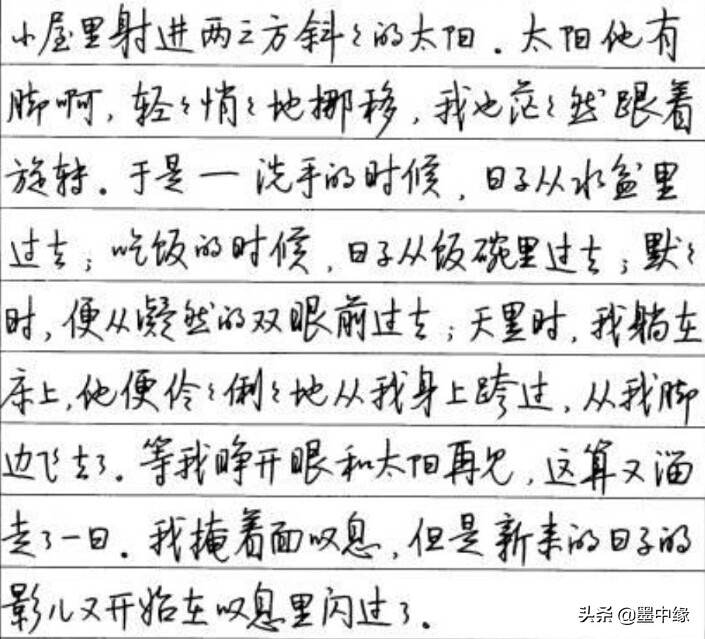 小屋里射进两三方斜々的太阳。太阳他有
脚啊,轻々悄々地挪移,我也茫々然跟着
旋转。于是一洗手的时候,日子从水盆里
过去;吃饭的时候,日子从饭碗里过去;默々
时,便从凝然的双眼前过去;天黑时,我躺在
床上,他便伶々俐々地从我身上跨过,从我脚
边飞去了。等我睁开眼和太阳再见,这算又溜
走了一日。我掩着面叹息,但是新来的日子的
影儿又开始在叹息里闪过了。
头条 @墨中缘